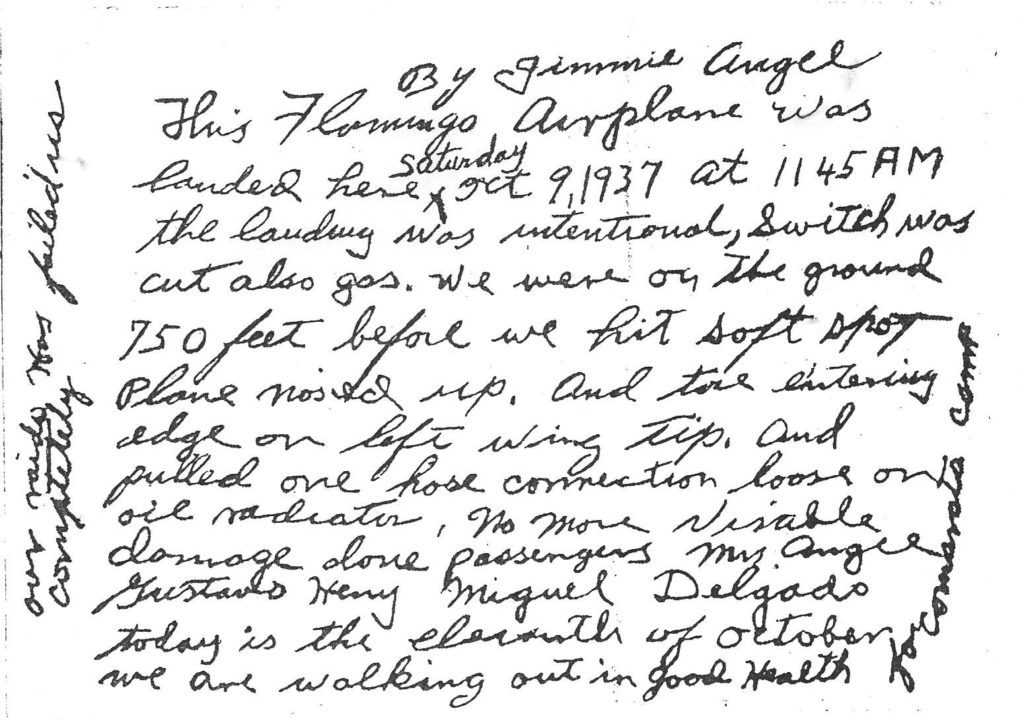 By Jimmie Angel
This Flamingo Airplane was
landed here Saturday Oct 9, 1937 at 11 45 AM
the landing was intentional, Switch was
cut also gas. We were on the ground
750 feet before we hit soft spot
Plane nosed up. And tore entering
edge on left wing tip. And
pulled one hose connection loose on
oil radiator, No more visable
damage done passengers Mrs Angel
Gustavo Heny Miguel Delgado
today is the eleventh of October
we are walking out in good Health
for Camarata Camp
our raido has failed us
completely